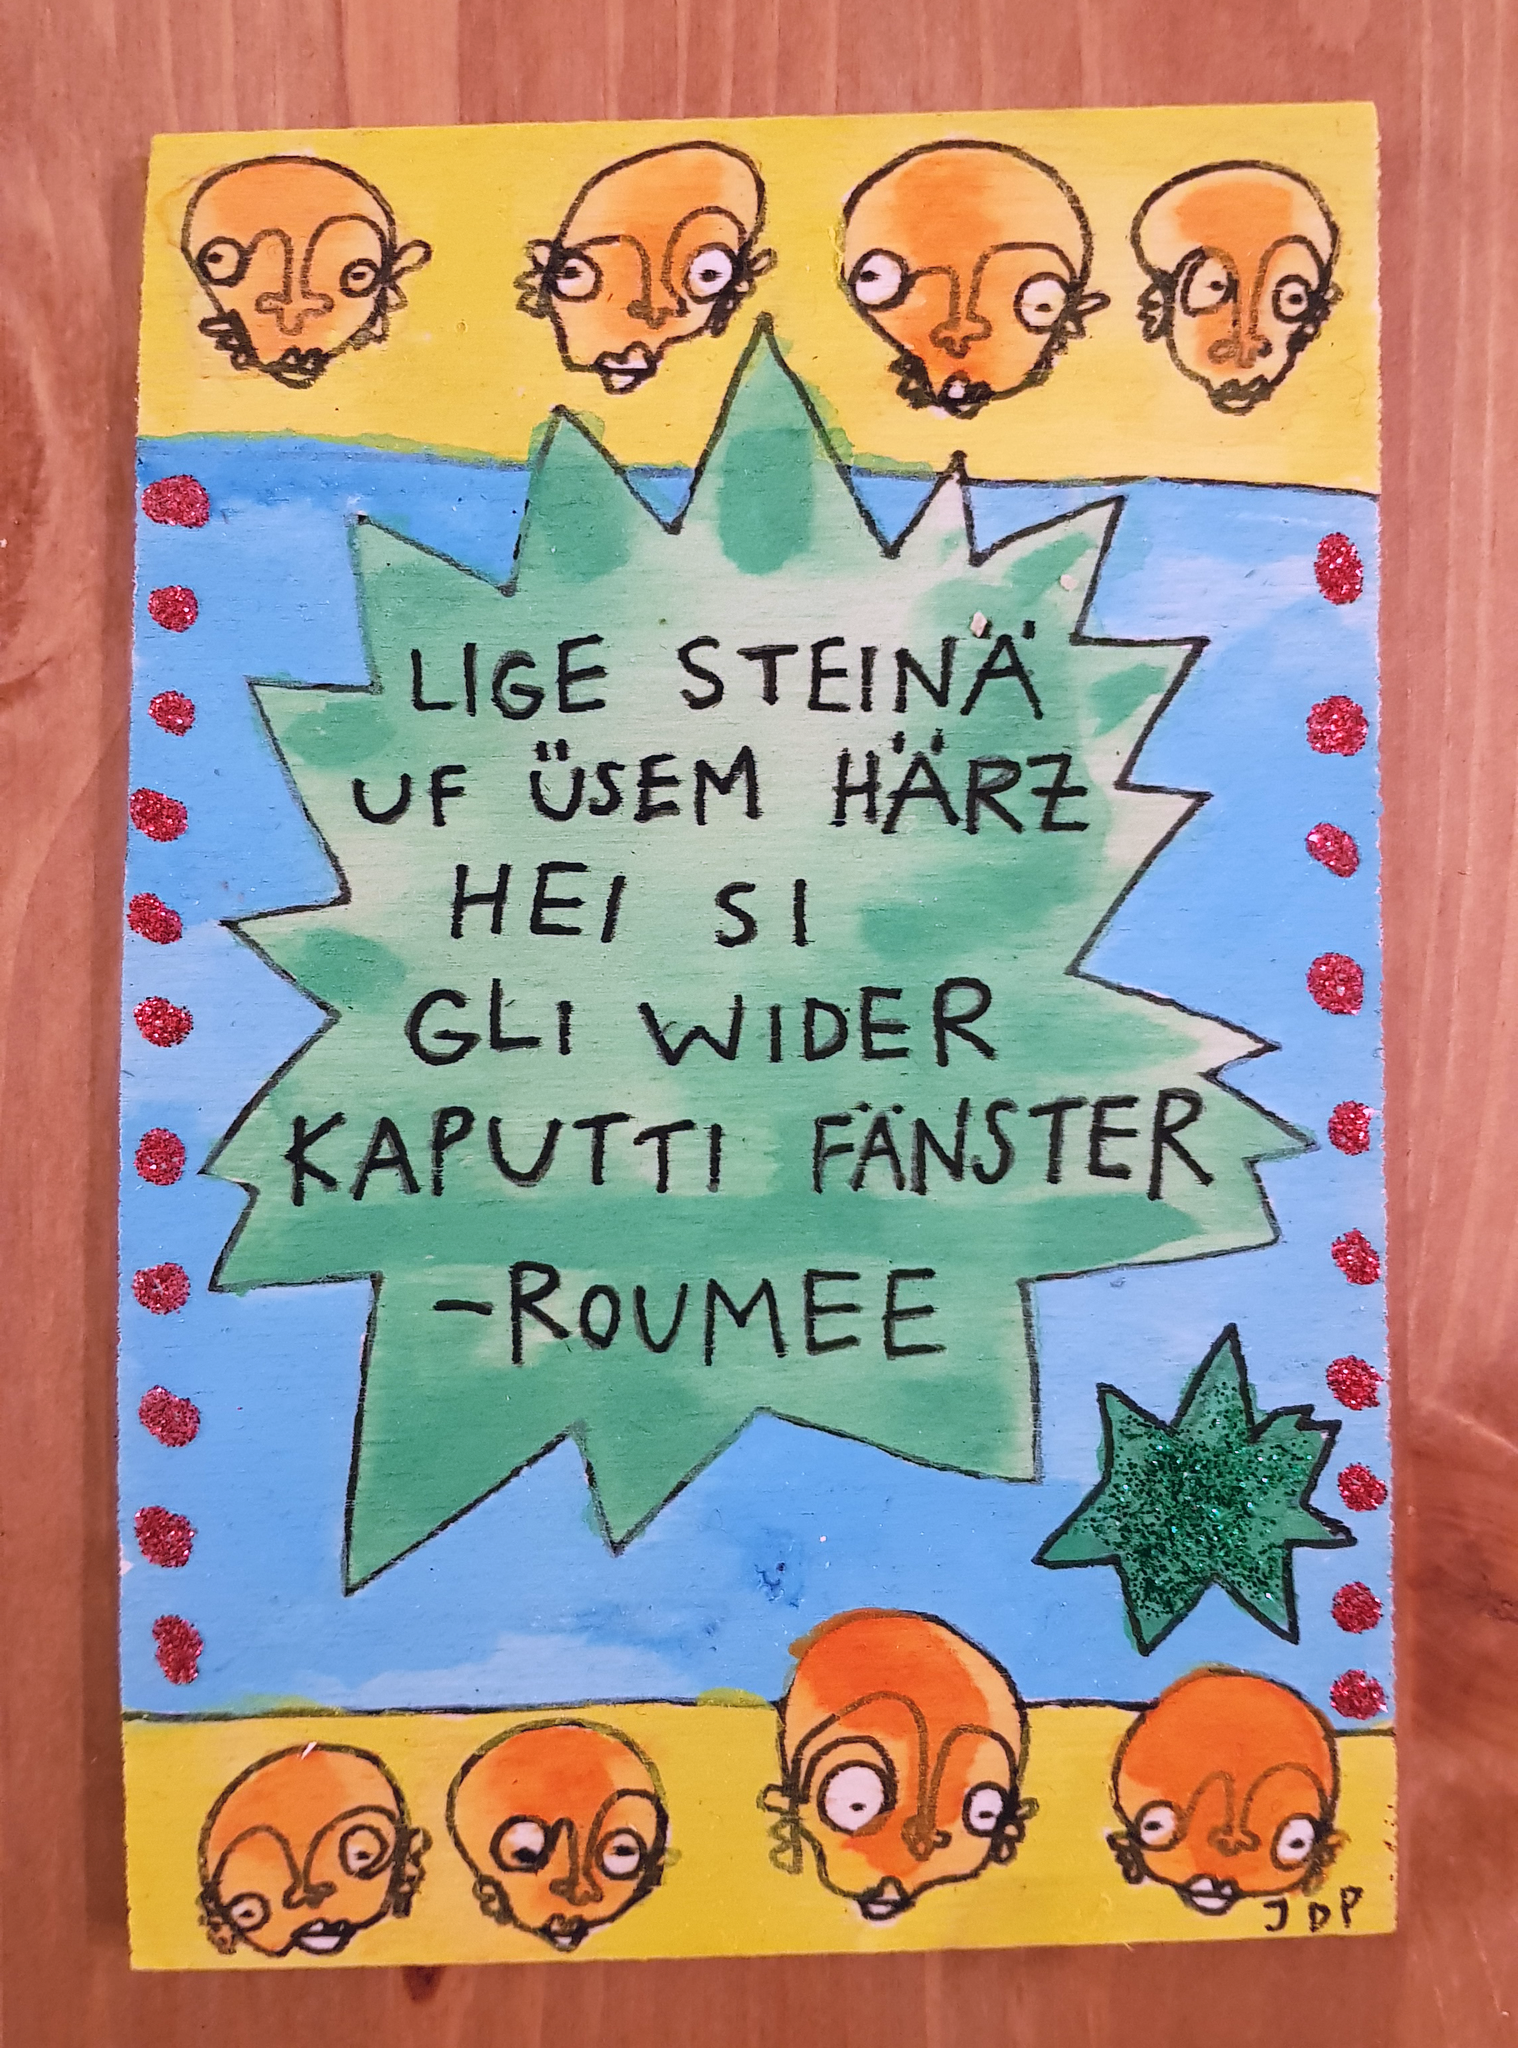 LIGE STEINÄ
UF ÜSEM HÄRZ
HEI SI
GLI WIDER
KAPUTTI FÄNSTER
-ROUMEE
JDP